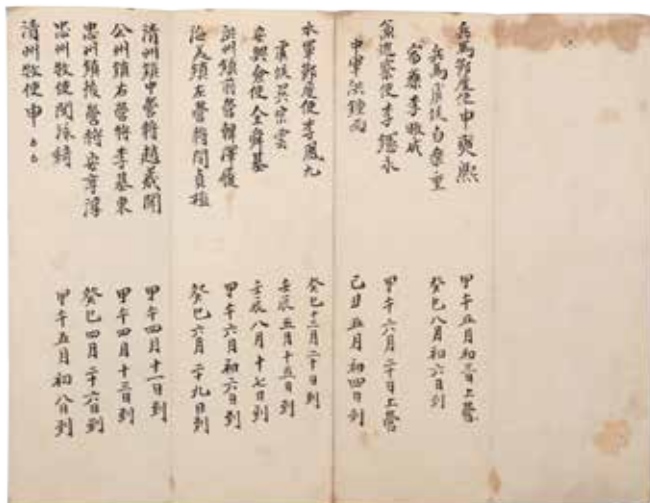 兵馬節度使申奭熙 甲午五月初三日上營
兵馬虞候白樂重 癸巳八月初六日到
審藥李敬成
兼巡察使李憲永 甲午六月二十日上營
中軍洪鍾雨 己丑五月初四日到
水軍節度使李鳳九 癸巳十二月二十日到
虞候吳宗雲 壬辰五月十五日到
安興僉使全舜基 壬辰八月十七日到
洪州鎭前營韓澤履 甲午六月初六日到
海美鎭左營將閔貞植 癸巳六月二十九日到
淸州鎭中營將趙義聞 甲午四月十一日到
公州鎭右營將李基東 甲午四月十三日到
忠州鎭後營將安亨 癸巳四月二十六日到
忠州牧使閔泳綺 甲午五月初八日到
淸州牧使申